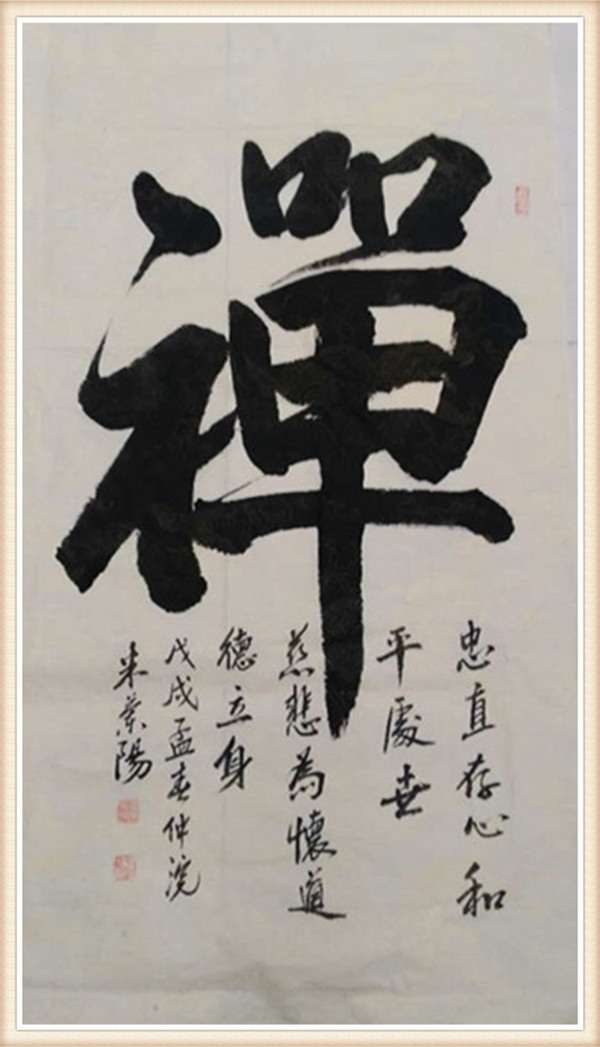 禪
忠直存心和
平處世
慈悲為懷道
德立身
戊戌孟春仲浣
朱業陽